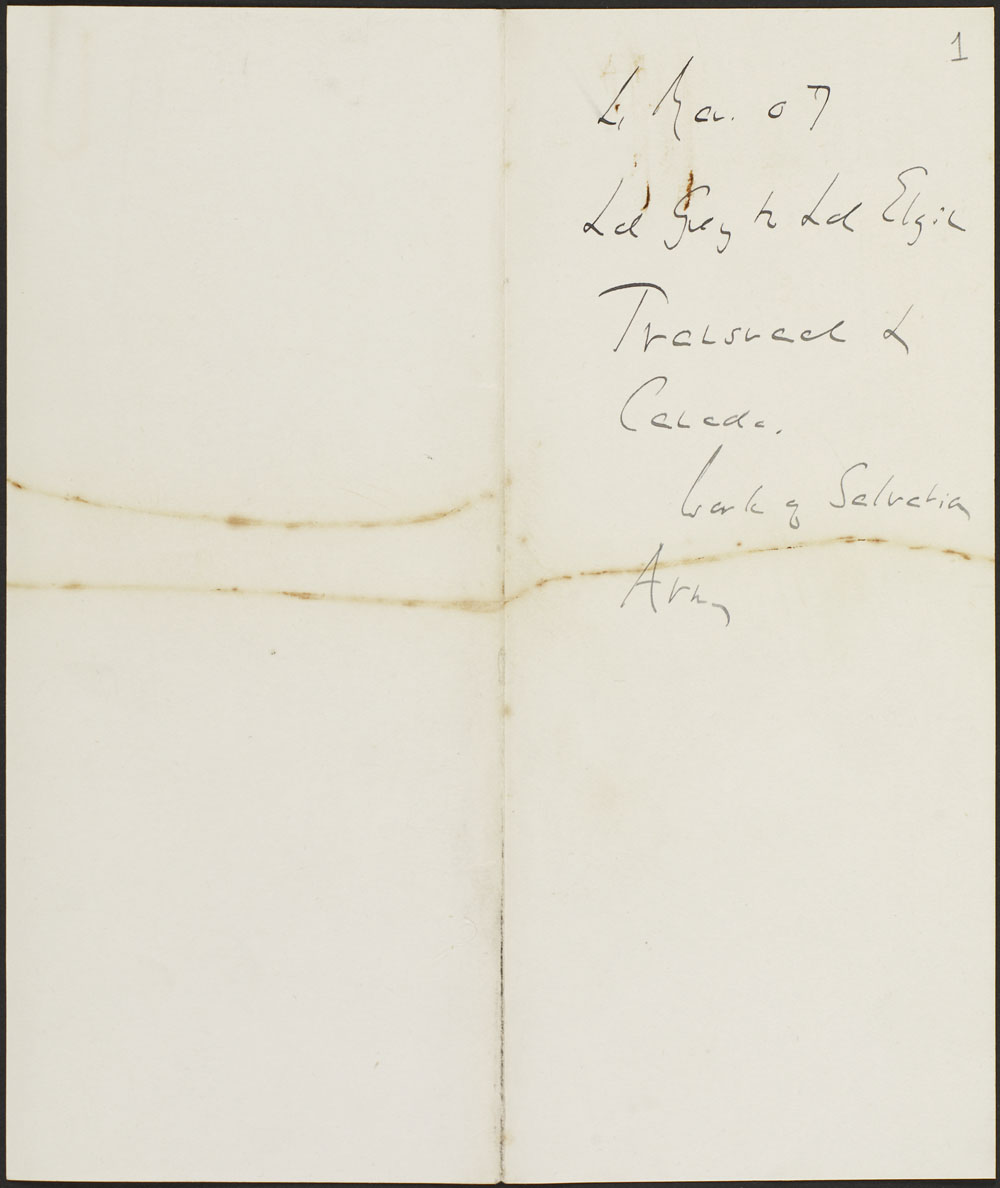 1
4 Mar. 07
Ld Grey to Ld Elgin
Transvaal &
Canada.
Work of Salvation
Army